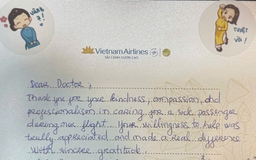 VÂNG Ạ!
TUYỆT VỜI!
Vietnam Airlines
SẢI CÁNH VƯƠN CAO
Dear Doctor,
Thank you for your kindness, compassion, and
professionalism in caring for a sick passenger
during our flight. Your willingness to help was
really appreciated and made a real difference
With sincere gratitude.